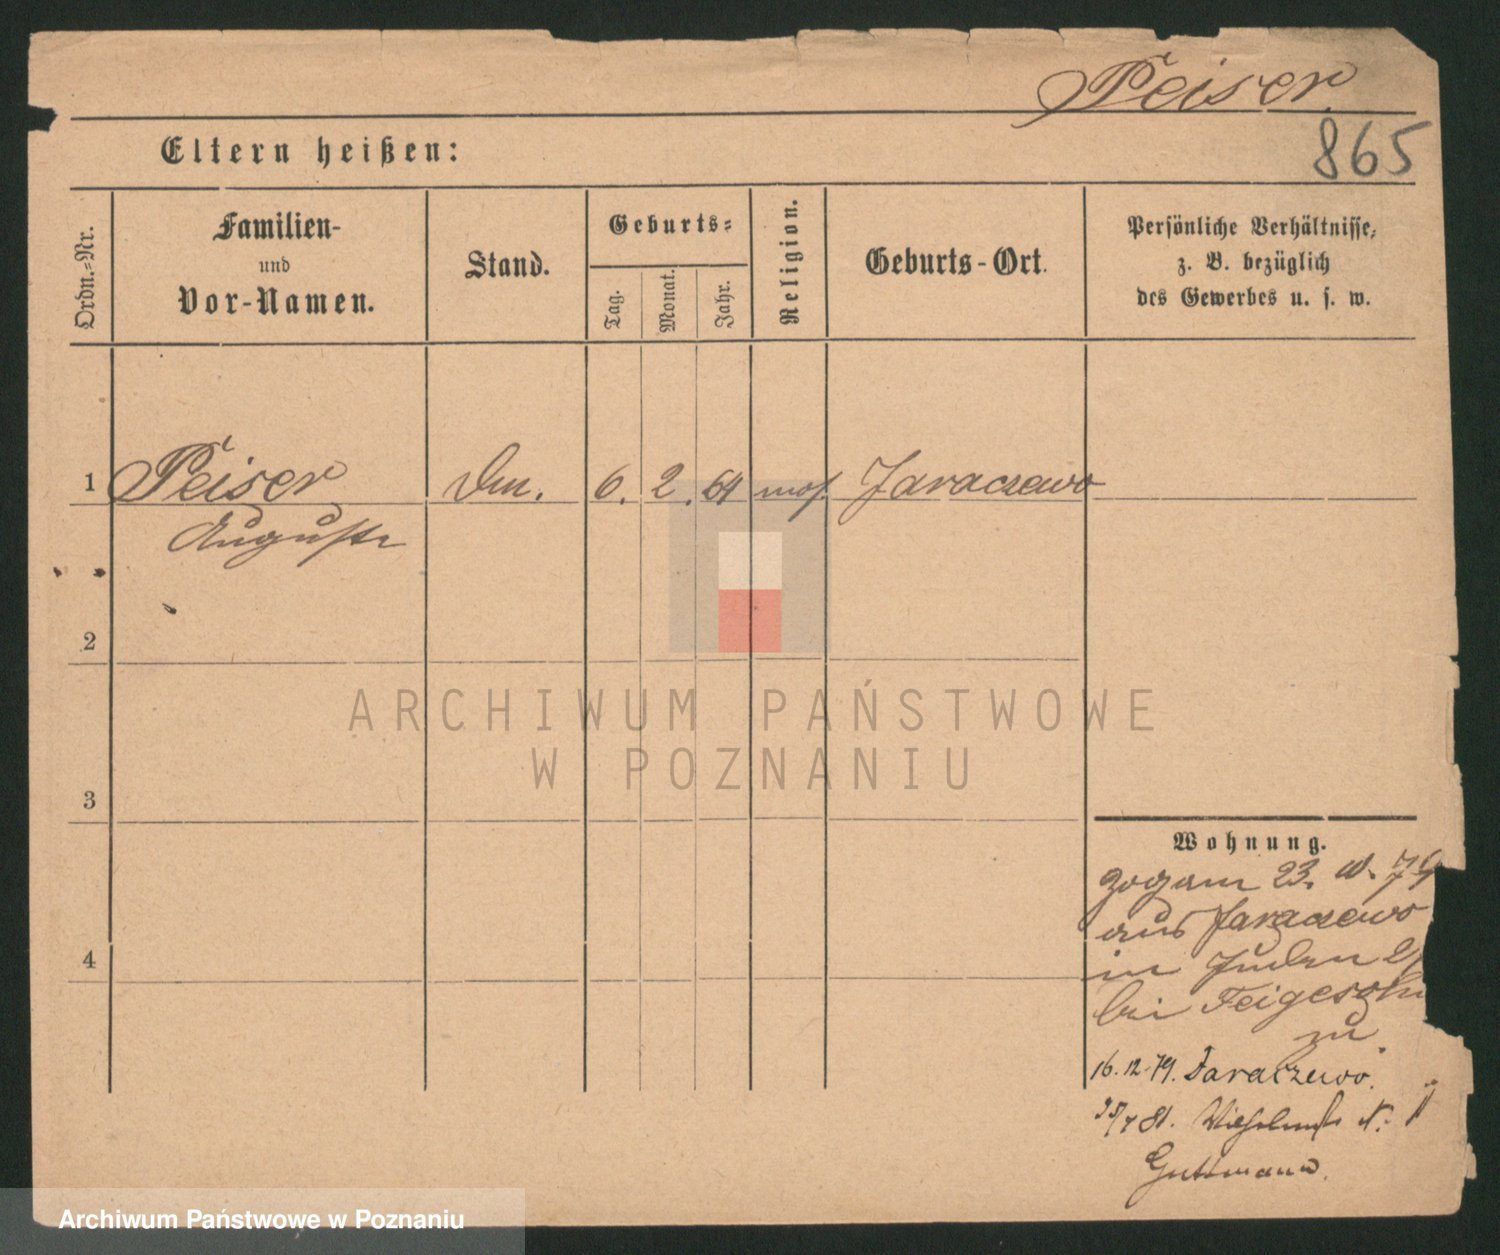 Peiser
865
Eltern heißen:
Ordn.-Nr.
Familien-
und
Vor-Namen.
Stand.
Geburts-
Tag.
Monat.
Jahr.
Religion.
Geburts-Ort.
Persönliche Verhältnisse,
z. B. bezüglich
des Gewerbes u. s. w.
1 Peiser 6. 2. 64 mos. Jaraczewo
Auguste
2
3
4
ARCHIWUM PAŃSTWOWE
W POZNANIU
Wohnung.
zog am 23. 79
aus Jaraczewo
in Juden
bei Feigesohn
zu.
16.12.79. Jaraczewo.
81.
Guttmann.
Archiwum Państwowe w Poznaniu